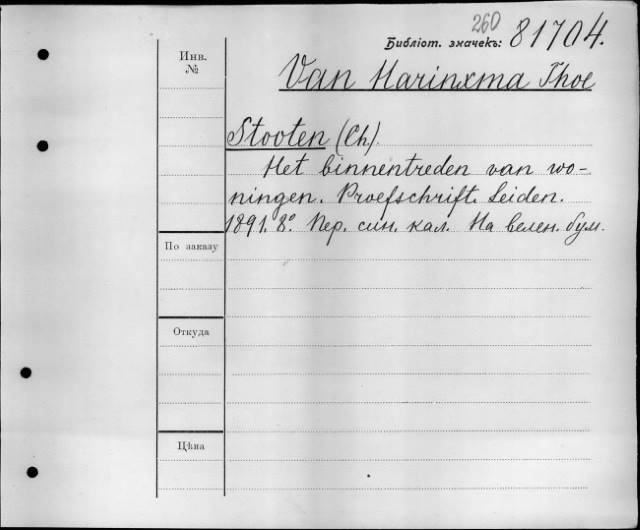 260
Библіот. значекъ: 81704.
Инв.
№
Van Harinxma Thoe
Stooten (Ch).
Het binnentreden van wo-
ningen. Proefschrift. Leiden.
1891. 8°. Пер. син. кал. На велен. бум.
По заказу
Откуда
Цѣна